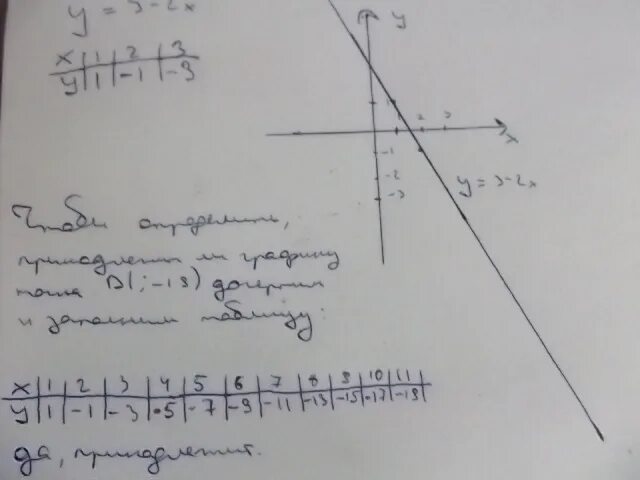 y = 3-2x
x | 1 | 2 | 3
y | 1 | -1 | -3
y
1 2 3
x
-1
-2
-3
y = 3-2x
Чтоби определить,
принадлежит ли графику
точка B( ; -19) дочертим
и заполним таблицу:
x | 1 | 2 | 3 | 4 | 5 | 6 | 7 | 8 | 9 | 10 | 11 |
y | 1 | -1 | -3 | -5 | -7 | -9 | -11 | -13 | -15 | -17 | -19 |
да, принадлежит.